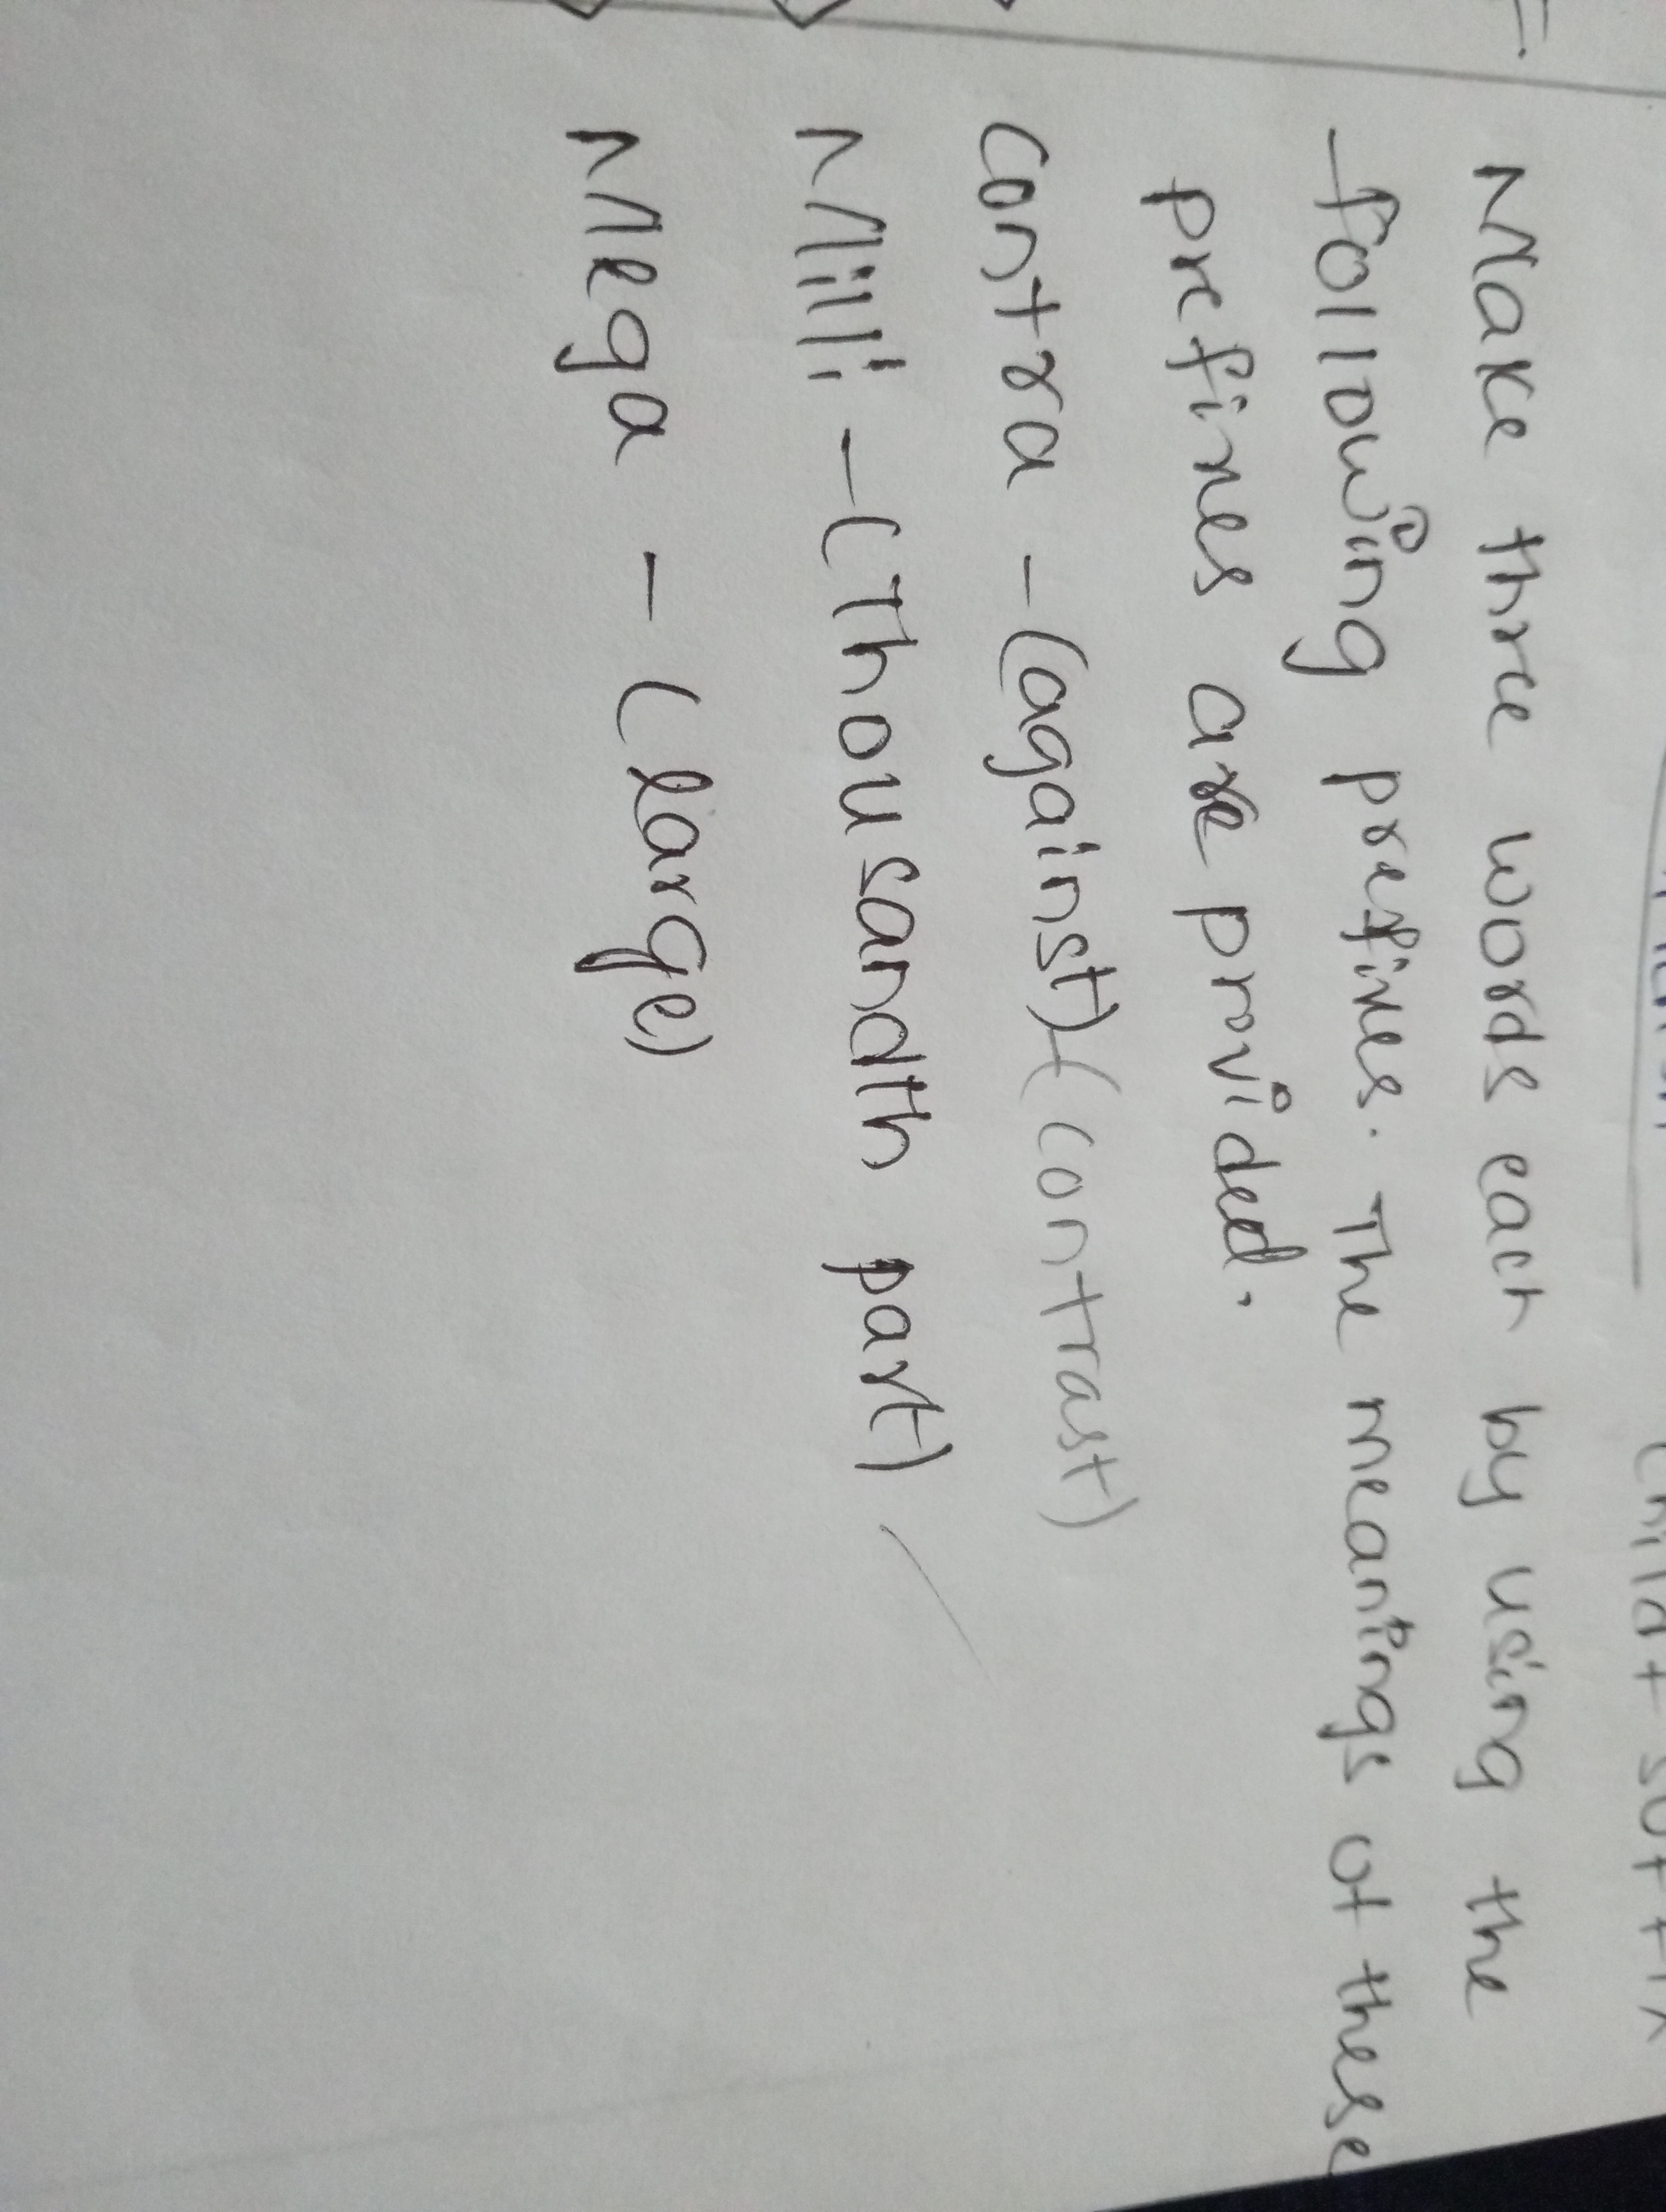 Make three words each by using the
following prefixes. The meanings of these
prefixes are provided.
Contra - (against) (contrast)
Milli - (Thousandth part)
Mega - (large)